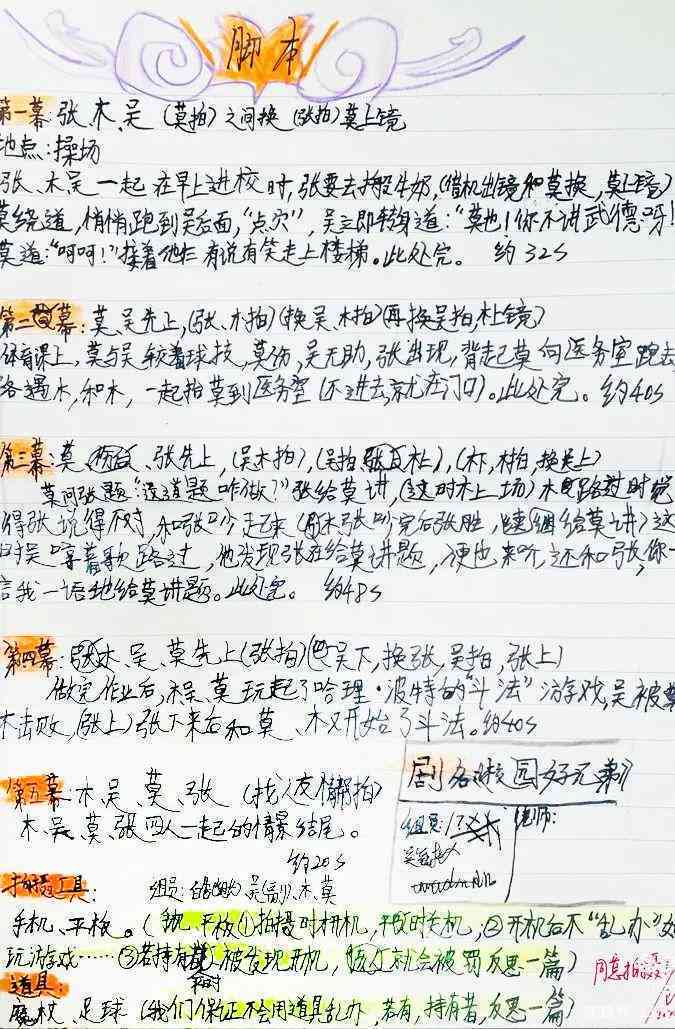 脚本
第一幕:张、木、吴(莫拍)之间换(张拍)莫上镜
地点:操场
张、木吴一起在早上进校时,张要去搬牛奶,(借机出镜和莫换,莫上镜)
莫绕道,悄悄跑到吴后面,“点穴”,吴立即转身道:“莫也!你不讲武德呀!
莫道:“呵呵!”接着他仨有说有笑走上楼梯。此处完。 约32s
第二幕:莫、吴先上,(张、木拍)(换吴、木拍)(再换吴拍,木上镜)
体育课上,莫与吴较着球技,莫伤,吴无助,张出现,背起莫向医务室跑去
路遇木,和木,一起抬莫到医务室(不进去,就在门口)。此处完。约40s
第三幕:莫、张先上,(吴木拍),(吴拍、木上),(木下,木拍,换吴上)
莫问张题“这道题咋做?”张给莫讲,(这时木上场)木路过时觉
得张说得不对,和张吵起来(木张吵完后张胜,继续给莫讲)这
时吴哼着歌路过,他发现张在给莫讲题,便也来听,还和张,你一
言我一语地给莫讲题。此处完。 约48s
第四幕:木、吴、莫先上(张拍)(吴下,换张,吴拍,张上)
做完作业后,木、吴、莫玩起了哈理·波特的“斗法”游戏,吴被莫
木击败,(张上)张下来后和莫、木又开始了斗法。约40s
第五幕:木、吴、莫、张 (找人友情帮拍)
木、吴、莫、张四人一起的情景结尾。
约20s
剧名:校园好兄弟
组员:
老师:
拍摄工具: 组员: 吴(副)、木、莫
手机、平板。( 平板①拍摄时开机,平时关机,②开机后不“乱办”如
玩游戏……③若持有者平时被发现开机,就会被罚反思一篇)
道具:
魔杖、足球(我们保证不会用道具乱办,若有,持有者,反思一篇)
同意拍摄